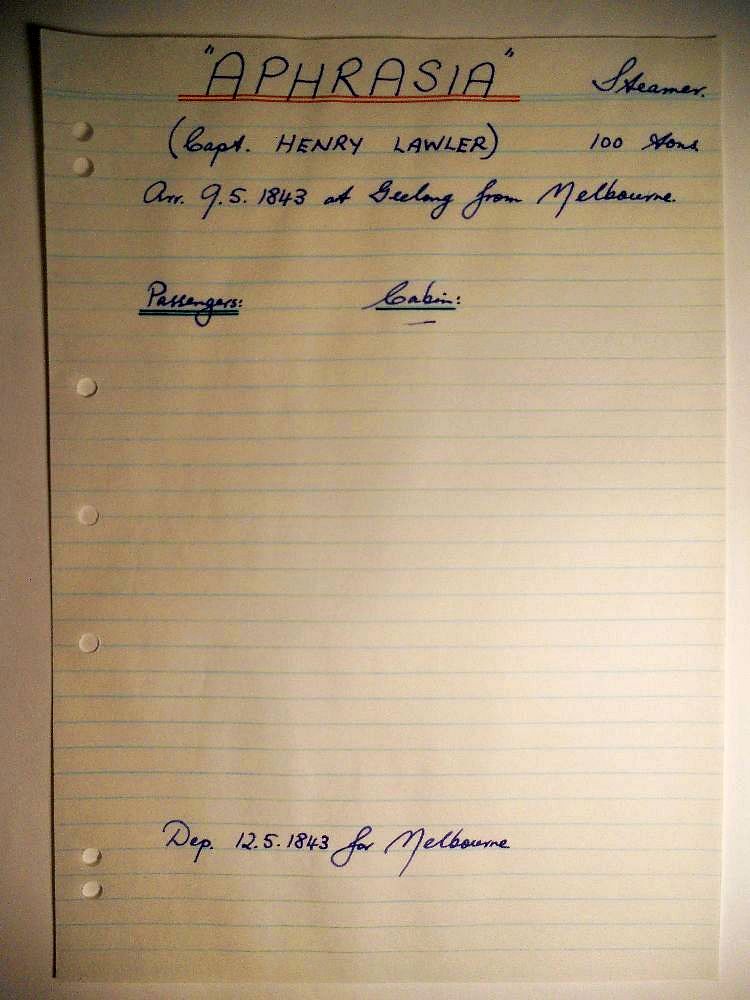 "APHRASIA" Steamer.
(Capt. HENRY LAWLER) 100 tons
Arr. 9.5.1843 at Geelong from Melbourne.
Passengers: Cabin:
—
Dep. 12.5.1843 for Melbourne